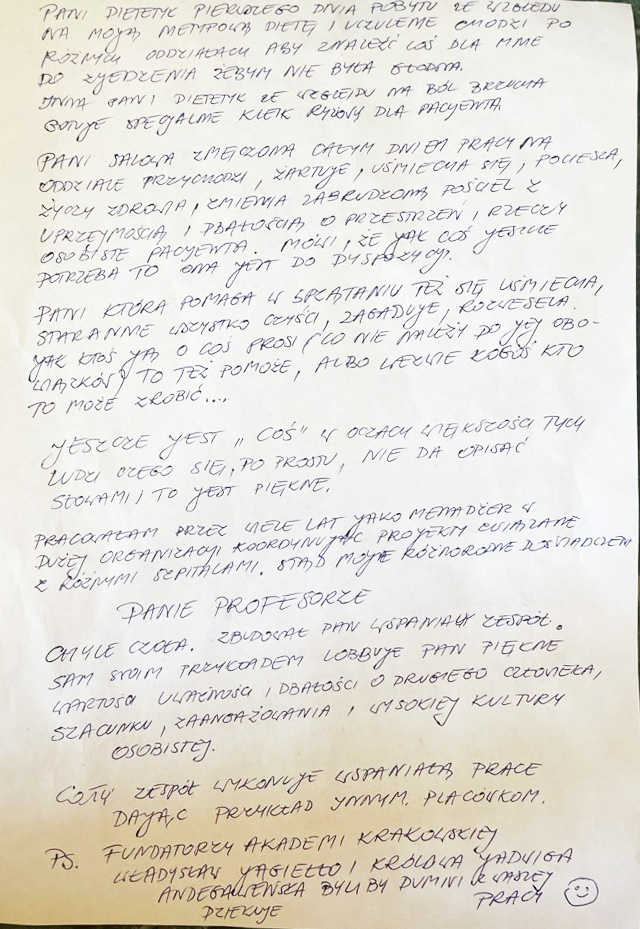 PANI DIETETYK PIERWSZEGO DNIA POBYTU ZE WZGLEDU
NA MOJĄ NIETYPOWĄ DIETĘ I UCZULENIE CHODZI PO
RÓŻNYCH ODDZIAŁACH ABY ZNALEŹĆ COŚ DLA MNIE
DO ZJEDZENIA ŻEBYM NIE BYŁA GŁODNA.
INNA PANI DIETETYK ZE WZGLEDU NA BÓL BRZUCHA
GOTUJE SPECJALNIE KLEIK RYŻOWY DLA PACJENTA
PANI SALOWA ZMĘCZONA CAŁYM DNIEM PRACY NA
ODDZIALE PRZYCHODZI, ŻARTUJE, UŚMIECHA SIĘ, POCIESZA,
ŻYCZY ZDROWIA, ZMIENIA ZABRUDZONĄ POŚCIEL Z
UPRZEJMOŚCIĄ I DBAŁOŚCIĄ O PRZESTRZEŃ I RZECZY
OSOBISTE PACJENTA. MÓWI, ŻE JAK COŚ JESZCZE
POTRZEBA TO ONA JEST DO DYSPOZYCJI.
PANI KTÓRA POMAGA W SPRZĄTANIU TEŻ SIĘ UŚMIECHA,
STARANNIE WSZYSTKO CZYŚCI, ZAGADUJE, ROZWESELA.
JAK KTOŚ JĄ O COŚ PROSI (CO NIE NALEŻY DO JEJ OBO-
WIĄZKÓW) TO TEŻ POMOŻE, ALBO WEZWIE KOGOŚ KTO
TO MOŻE ZROBIĆ....
JESZCZE JEST „COŚ" W OCZACH WIĘKSZOŚCI TYCH
LUDZI CZEGO SIĘ, PO PROSTU, NIE DA OPISAĆ
SŁOWAMI I TO JEST PIĘKNE.
PRACOWAŁAM PRZEZ WIELE LAT JAKO MENADŻER W
DUŻEJ ORGANIZACJI KOORDYNUJĄC PROJEKTY ZWIĄZANE
Z RÓŻNYMI SZPITALAMI. STĄD MOJE RÓŻNORODNE DOŚWIADCZEN
PANIE PROFESORZE
CHYLE CZOŁA. ZBUDOWAŁ PAN WSPANIAŁY ZESPÓŁ.
SAM SWOIM PRZYKŁADEM LOBBUJE PAN PIĘKNE
WARTOŚCI UWAŻNOŚCI I DBAŁOŚCI O DRUGIEGO CZŁOWIEKA,
SZACUNKU, ZAANGAŻOWANIA I WYSOKIEJ KULTURY
OSOBISTEJ.
CAŁY ZESPÓŁ WYKONUJE WSPANIAŁĄ PRACE
DAJĄC PRZYKŁAD INNYM. PLACÓWKOM.
PS. FUNDATORZY AKADEMI KRAKOWSKIEJ
WŁADYSŁAW JAGIEŁŁO I KRÓLOWA JADWIGA
ANDEGAWEŃSKA BYLI BY DUMNI Z WASZEJ
PRACY
DZIEKUJE